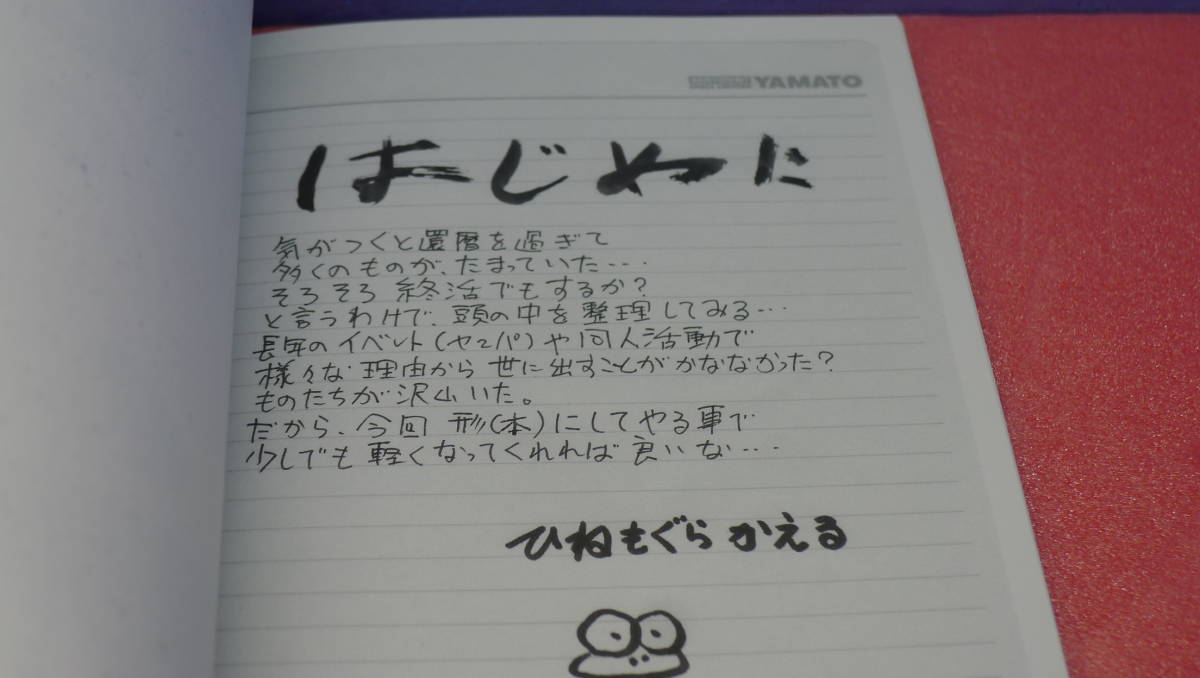 YAMATO
はじめに
気がつくと還暦を過ぎて
多くのものが、たまっていた…
そろそろ終活でもするか?
と言うわけで、頭の中を整理してみる…
長年のイベント(ヤマパ)や同人活動で
様々な理由から世に出すことがかななかった?
ものたちが沢山いた。
だから、今回 形(本)にしてやる事で
少しでも軽くなってくれれば良いな…
ひねもぐら かえる